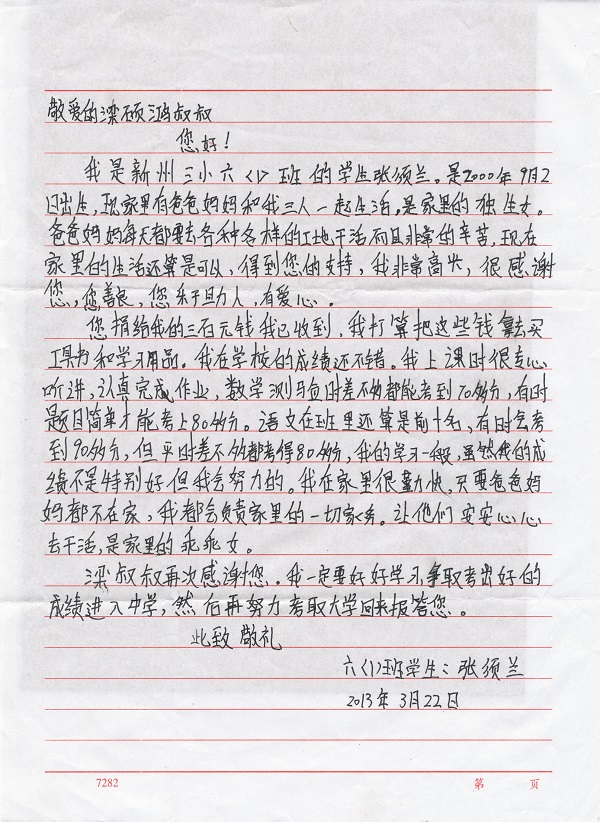 敬爱的梁硕鸿叔叔
您好！
我是新州三小六〈1〉班的学生张须兰。是2000年9月2
日出生，现家里有爸爸妈妈和我三人一起生活，是家里的独生女。
爸爸妈妈每天都要去各种各样的工地干活而且非常的辛苦，现在
家里的生活还算是可以，得到您的支持，我非常高兴，很感谢
您，您善良，您乐于助人，有爱心。
您捐给我的三百元钱我已收到，我打算把这些钱拿去买
工具书和学习用品。我在学校的成绩还不错。我上课时很专心
听讲，认真完成作业，数学测验时差不多都能考到70多分，有时
题目简单才能考上80多分。语文在班里还算是前十名，有时会考
到90多分，但平时差不多都考得80多分，我的学习一般，虽然我的成
绩不是特别好但我会努力的。我在家里很勤快，只要爸爸妈
妈都不在家，我都会负责家里的一切家务。让他们安安心心
去干活，是家里的乖乖女。
梁叔叔再次感谢您。我一定要好好学习，争取考出好的
成绩进入中学，然后再努力考取大学回来报答您。
此致敬礼
六〈1〉班学生：张须兰
2013年3月22日
7282 第 页